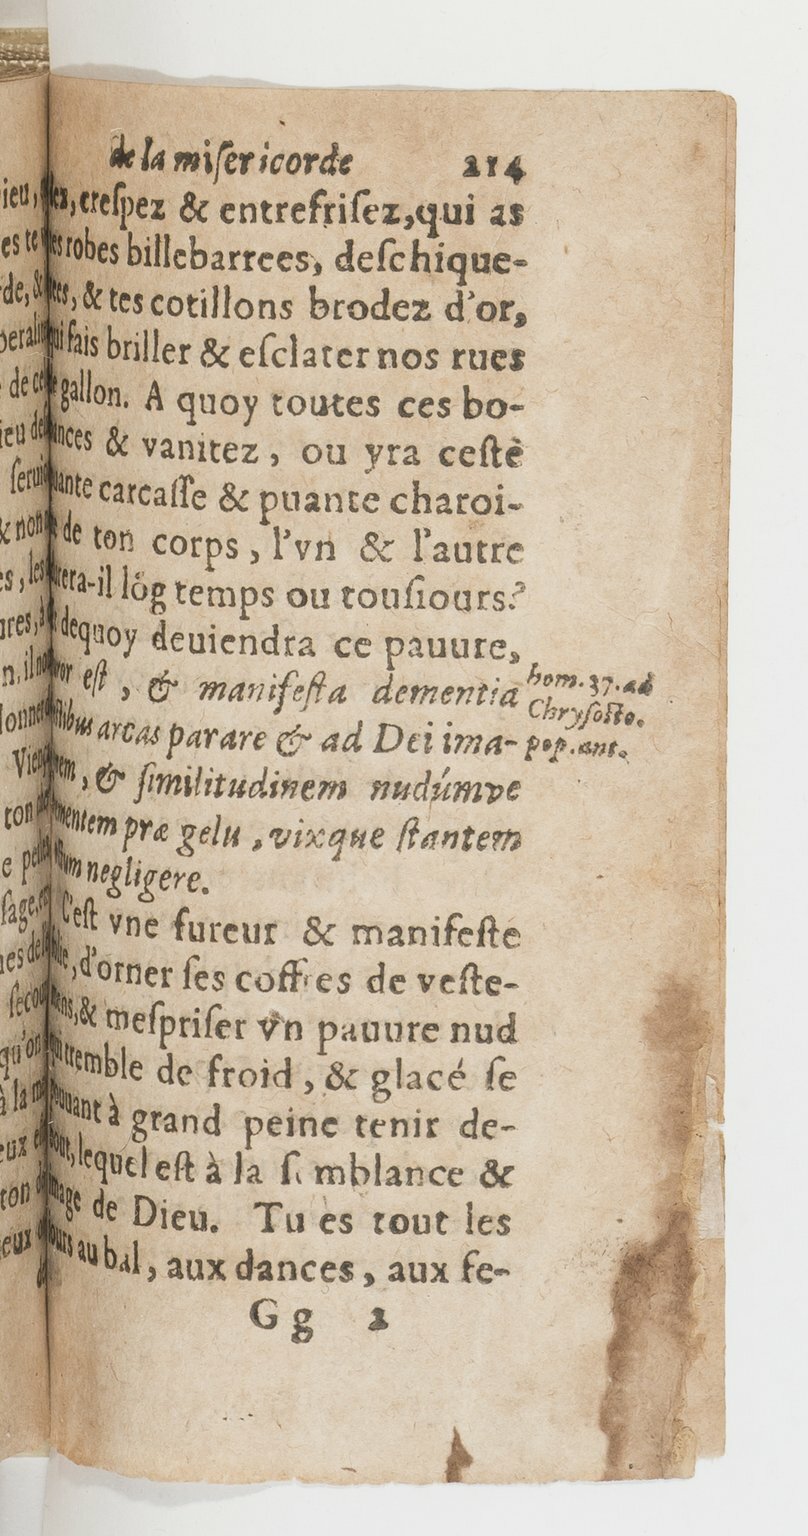 de la miſericorde 214
ez, creſpez & entrefriſez, qui as
es robes billebarrees, deſchique-
tes, & tes cotillons brodez d'or,
ui fais briller & eſclater nos rues
gallon. A quoy toutes ces bo-
nces & vanitez, ou yra ceſte
uante carcaſſe & puante charoi-
de ton corps, l'vn & l'autre
rera-il lõg temps ou touſiours?
dequoy deuiendra ce pauure,
ror eſt, & manifeſta dementia
hom. 37. ad
Chryſoſto.
pop. ant.
ſtibus arcas parare & ad Dei ima-
nem, & ſimilitudinem nudúmve
mentem præ gelu, vixque ſtantem
negligere.
C'eſt vne fureur & manifeſte
lie, d'orner ſes coffres de veſte-
ens, & meſpriſer vn pauure nud
tremble de froid, & glacé ſe
ouant à grand peine tenir de-
out, lequel eſt à la ſ mblance &
mage de Dieu. Tu es tout les
ours au bal, aux dances, aux fe-
Gg 2